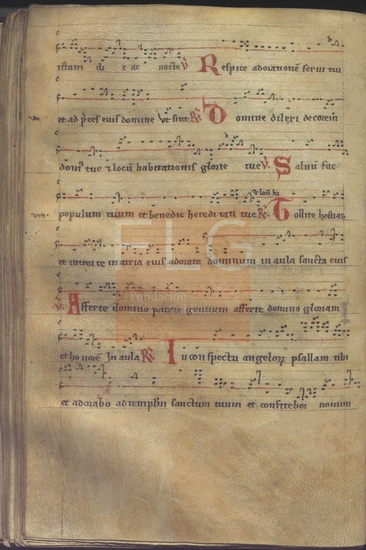 istam di e ac nocte V Respice adorationē serui tui
et ad p̄ces euis domine Vt sint R̄ Domine dilexi decorem
dom' tue ⁊ locū habitationis glorie tue V. Saluū fac
populum tuum et benedic heredi tati tue R̄ Tollite hostias
et introite in atria eius adorate dominum in aula sancta eius
V. Afferte domino patrie gentium afferte domino gloriam
et honorē In aula R̄ In conspectu angelorꝝ psallam tibi
et adorabo ad templū sanctum tuum et confitebor nomini
FLG
Fundación